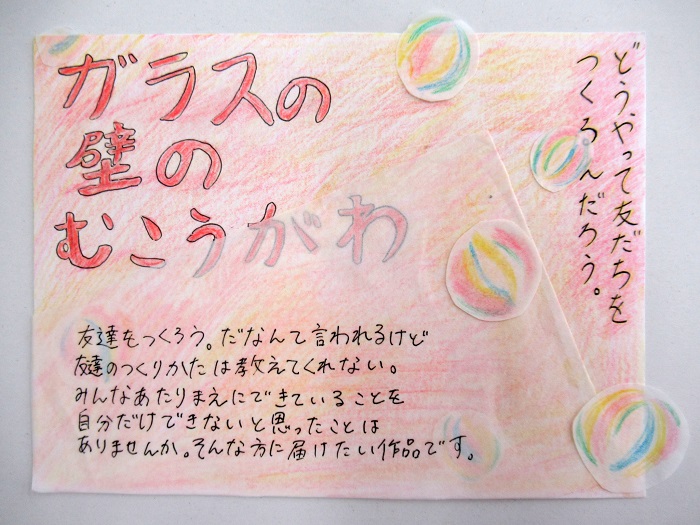 ガラスの
壁の
むこうがわ
どうやって友だちを
つくるんだろう。
友達をつくろう。だなんて言われるけど
友達のつくりかたは教えてくれない。
みんなあたりまえにできていることを
自分だけできないと思ったことは
ありませんか。そんな方に届けたい作品です。